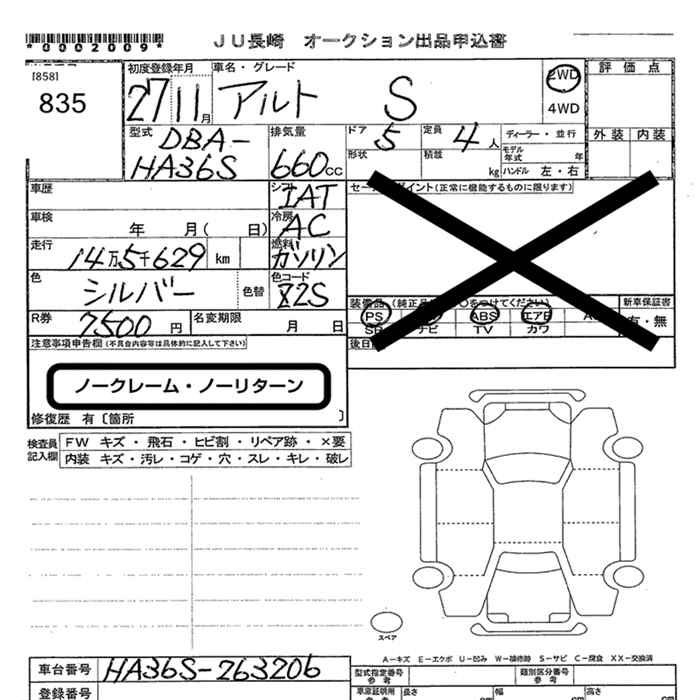 *0002009*
JU長崎 オークション出品申込書
[858]
835
初度登録年月 27 11月
車名・グレード アルト S
2WD
4WD
評価点
外装 内装
型式 DBA-
HA36S
排気量 660cc
ドア 5
定員 4人
ディーラー・並行
形状
積載 kg
モデル年式 年
ハンドル 左・右
車歴
シフト IAT
車検 年 月( 日)
冷房 AC
走行 14万5千629 km
燃料 ガソリン
色 シルバー
色替
色コード Z2S
R券 7500円
名変期限 月 日
セールスポイント(正常に機能するものに限ります)
装備品 (純正品 ○をつけてください)
PS ABS エアB
SR ナビ TV カワ
新車保証書
有・無
後日
注意事項申告欄(不具合内容等は具体的に記入して下さい)
ノークレーム・ノーリターン
修復歴 有〔箇所 〕
検査員記入欄
FW キズ・飛石・ヒビ割・リペア跡・×要
内装 キズ・汚レ・コゲ・穴・スレ・キレ・破レ
スペア
A-キズ E-エクボ U-凹み W-補修跡 S-サビ C-腐食 XX-交換済
車台番号 HA36S-263206
登録番号
型式指定番号 参考
類別区分番号 参考
車庫証明用 参考
長さ cm
幅 cm
高さ cm